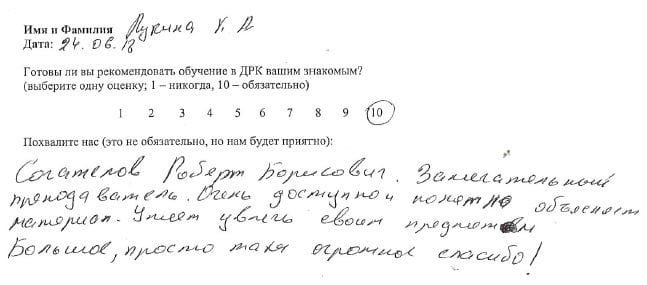 Имя и Фамилия Лукина Х. А
Дата: 24.06.13
Готовы ли вы рекомендовать обучение в ДРК вашим знакомым?
(выберите одну оценку; 1 – никогда, 10 – обязательно)
1 2 3 4 5 6 7 8 9 10
Похвалите нас (это не обязательно, но нам будет приятно):
Согателов Роберт Борисович. Замечательный
преподаватель. Очень доступно и понятно объясняет
материал. Умеет увлечь своим предметом
Большое, просто таки огромное спасибо!